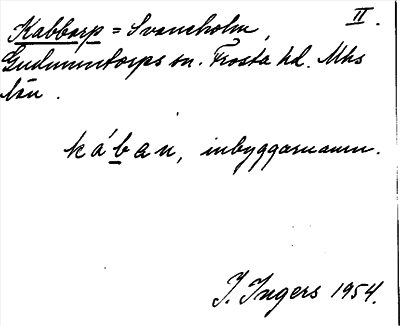 Kabbarp = Svaneholm, II.
Gudmuntorps sn. Frosta hd. Mhs
län.
kában, inbyggarnamn.
I. Ingers 1954.